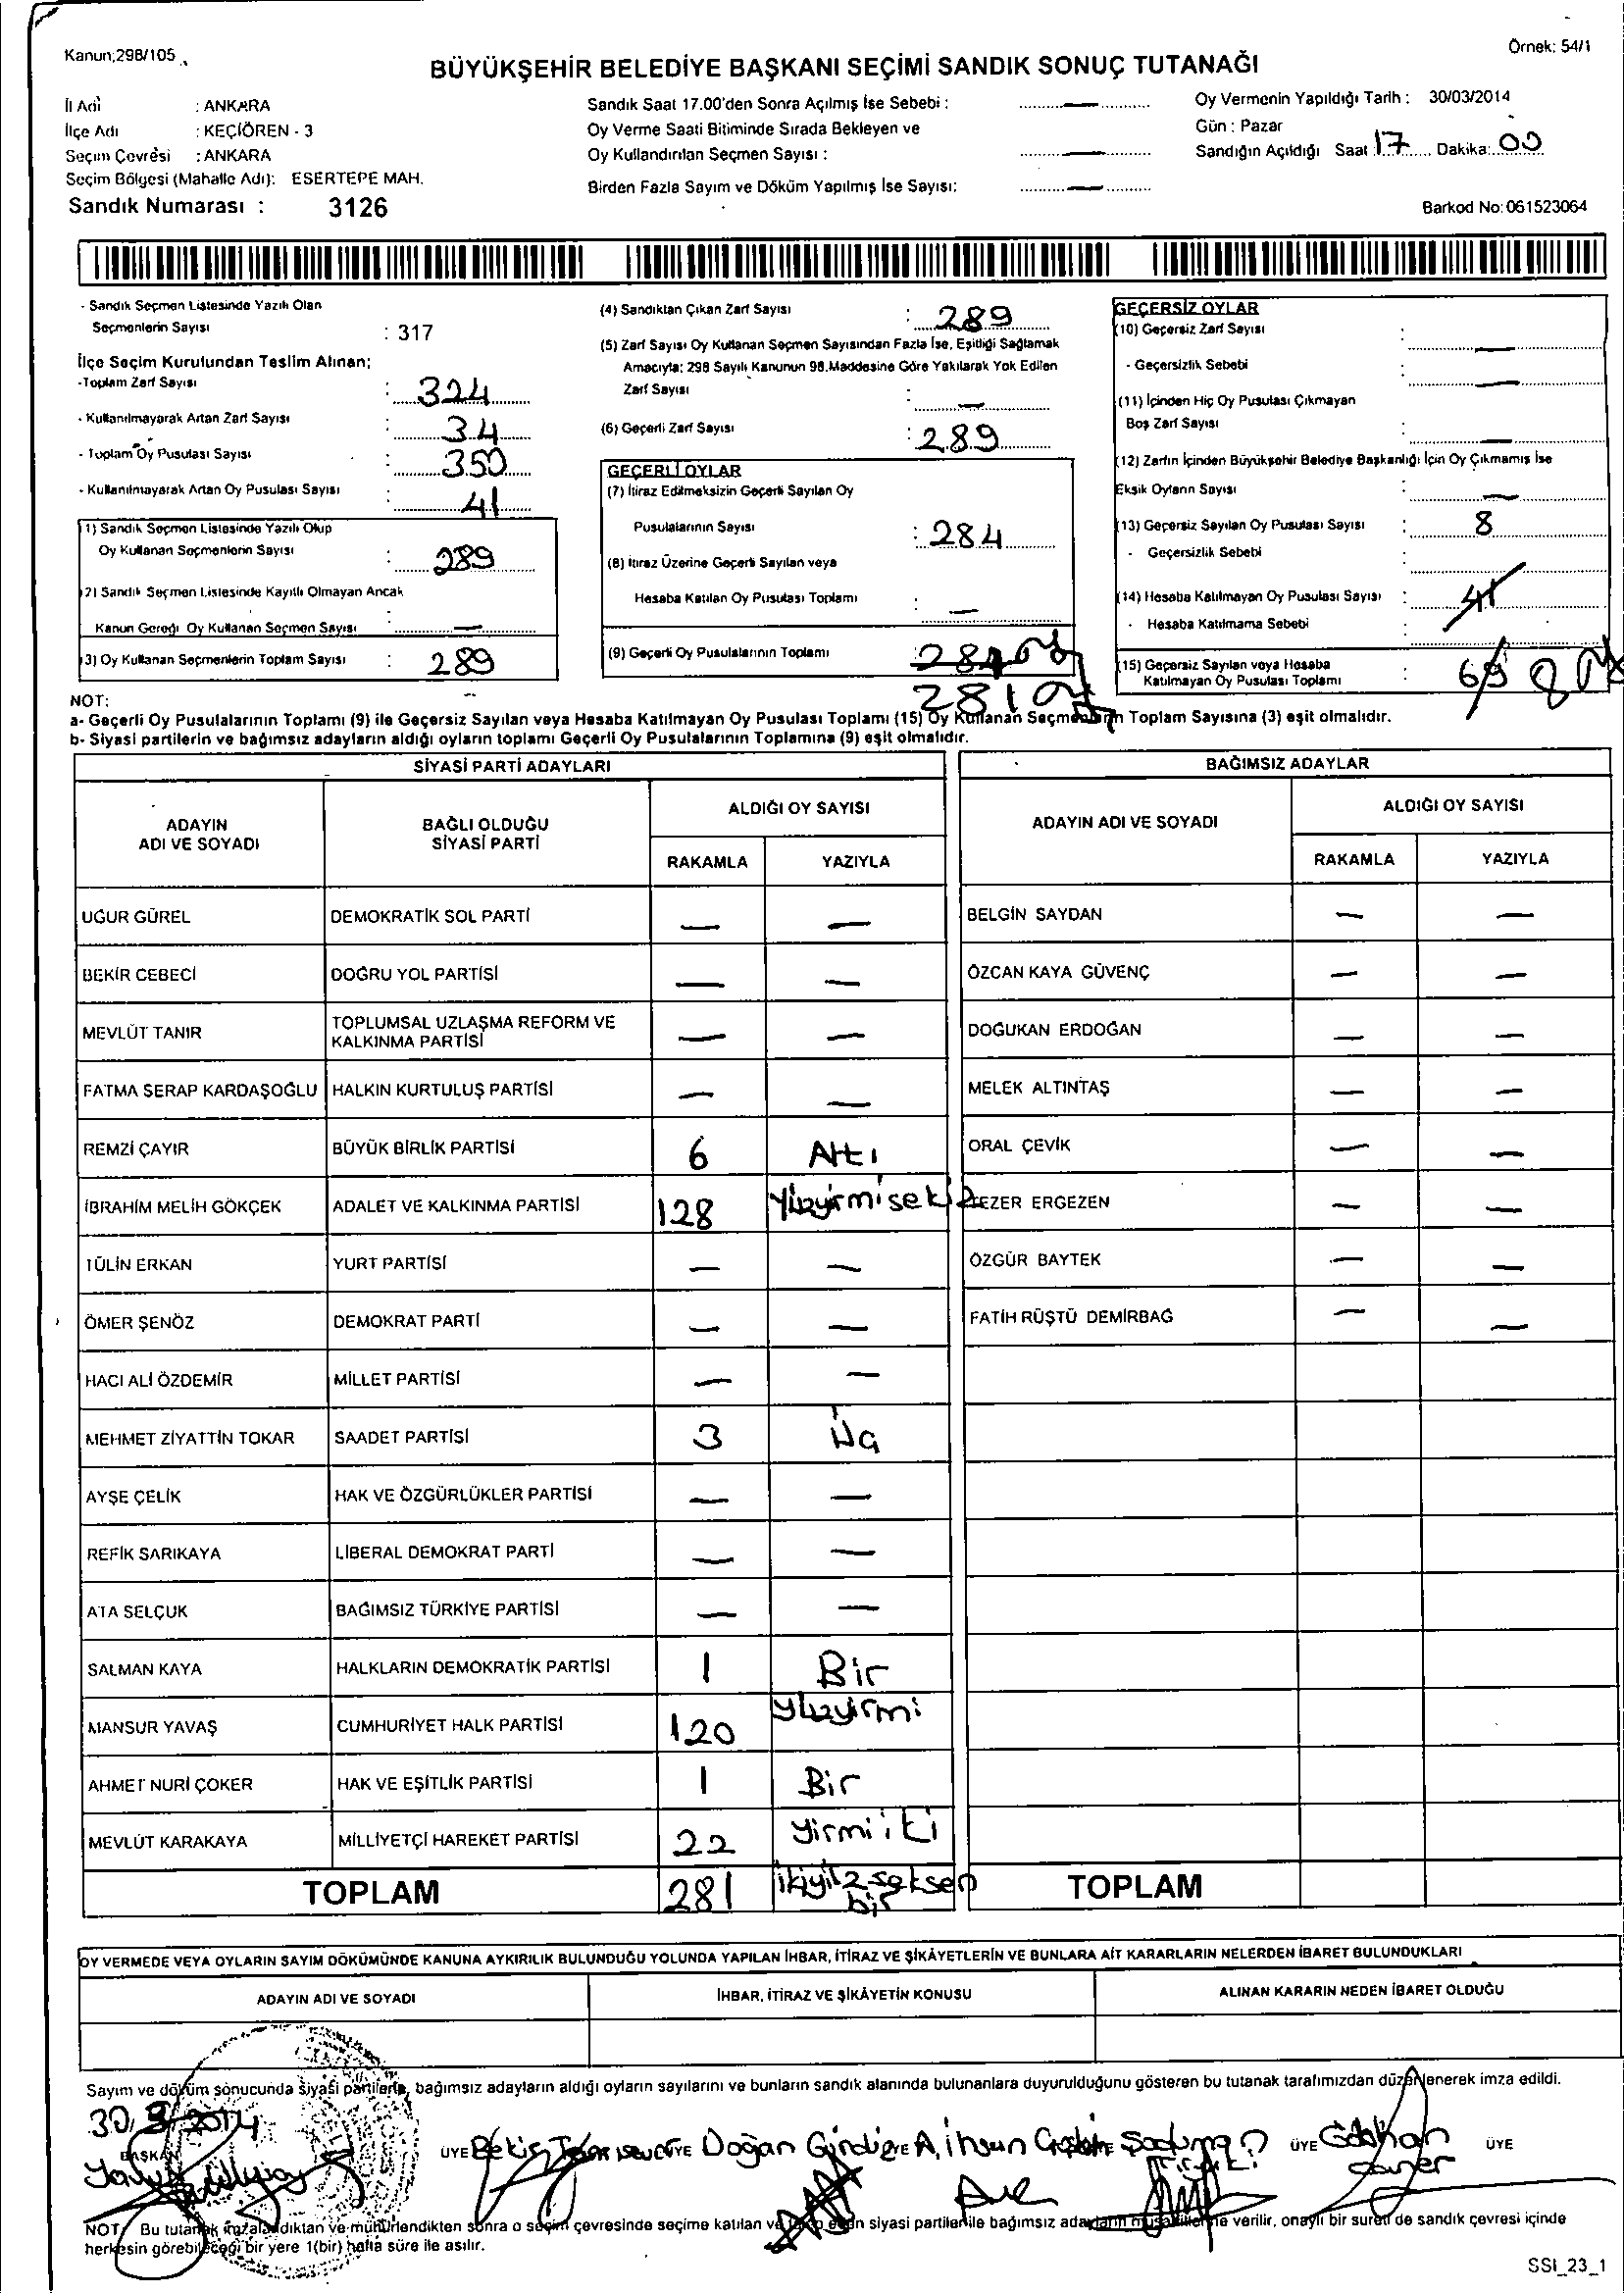 Kanun;298/105
Örnek: 54/1
BÜYÜKŞEHİR BELEDİYE BAŞKANI SEÇİMİ SANDIK SONUÇ TUTANAĞI
İl Adı : ANKARA
İlçe Adı : KEÇİÖREN - 3
Seçim Çevresi : ANKARA
Seçim Bölgesi (Mahalle Adı): ESERTEPE MAH.
Sandık Numarası : 3126
Sandık Saat 17.00'den Sonra Açılmış İse Sebebi : —
Oy Verme Saati Bitiminde Sırada Bekleyen ve
Oy Kullandırılan Seçmen Sayısı : —
Birden Fazla Sayım ve Döküm Yapılmış İse Sayısı: —
Oy Vermenin Yapıldığı Tarih : 30/03/2014
Gün : Pazar
Sandığın Açıldığı Saat 17 Dakika: 00
Barkod No: 061523064
- Sandık Seçmen Listesinde Yazılı Olan
Seçmenlerin Sayısı : 317
İlçe Seçim Kurulundan Teslim Alınan;
-Toplam Zarf Sayısı : 324
- Kullanılmayarak Artan Zarf Sayısı : 34
- Toplam Oy Pusulası Sayısı : 350
- Kullanılmayarak Artan Oy Pusulası Sayısı : 41
(1) Sandık Seçmen Listesinde Yazılı Olup
Oy Kullanan Seçmenlerin Sayısı : 289
(2) Sandık Seçmen Listesinde Kayıtlı Olmayan Ancak
Kanun Gereği Oy Kullanan Seçmen Sayısı : —
(3) Oy Kullanan Seçmenlerin Toplam Sayısı : 289
(4) Sandıktan Çıkan Zarf Sayısı : 289
(5) Zarf Sayısı Oy Kullanan Seçmen Sayısından Fazla İse, Eşitliği Sağlamak
Amacıyla; 298 Sayılı Kanunun 98.Maddesine Göre Yakılarak Yok Edilen
Zarf Sayısı : —
(6) Geçerli Zarf Sayısı : 289
GEÇERLİ OYLAR
(7) İtiraz Edilmeksizin Geçerli Sayılan Oy
Pusulalarının Sayısı : 284
(8) İtiraz Üzerine Geçerli Sayılan veya
Hesaba Katılan Oy Pusulası Toplamı : —
(9) Geçerli Oy Pusulalarının Toplamı : 284
281
GEÇERSİZ OYLAR
(10) Geçersiz Zarf Sayısı : —
- Geçersizlik Sebebi : —
(11) İçinden Hiç Oy Pusulası Çıkmayan
Boş Zarf Sayısı : —
(12) Zarfın İçinden Büyükşehir Belediye Başkanlığı İçin Oy Çıkmamış İse
Eksik Oyların Sayısı : —
(13) Geçersiz Sayılan Oy Pusulası Sayısı : 8
- Geçersizlik Sebebi :
(14) Hesaba Katılmayan Oy Pusulası Sayısı : 41
- Hesaba Katılmama Sebebi :
(15) Geçersiz Sayılan veya Hesaba
Katılmayan Oy Pusulası Toplamı : 8
NOT:
a- Geçerli Oy Pusulalarının Toplamı (9) ile Geçersiz Sayılan veya Hesaba Katılmayan Oy Pusulası Toplamı (15) Oy Kullanan Seçmenlerin Toplam Sayısına (3) eşit olmalıdır.
b- Siyasi partilerin ve bağımsız adayların aldığı oyların toplamı Geçerli Oy Pusulalarının Toplamına (9) eşit olmalıdır.
SİYASİ PARTİ ADAYLARI
ADAYIN ADI VE SOYADI BAĞLI OLDUĞU SİYASİ PARTİ ALDIĞI OY SAYISI RAKAMLA YAZIYLA
UĞUR GÜREL DEMOKRATİK SOL PARTİ — —
BEKİR CEBECİ DOĞRU YOL PARTİSİ — —
MEVLÜT TANIR TOPLUMSAL UZLAŞMA REFORM VE KALKINMA PARTİSİ — —
FATMA SERAP KARDAŞOĞLU HALKIN KURTULUŞ PARTİSİ — —
REMZİ ÇAYIR BÜYÜK BİRLİK PARTİSİ 6 Altı
İBRAHİM MELİH GÖKÇEK ADALET VE KALKINMA PARTİSİ 128 Yüzyirmisekiz
TÜLİN ERKAN YURT PARTİSİ — —
ÖMER ŞENÖZ DEMOKRAT PARTİ — —
HACI ALİ ÖZDEMİR MİLLET PARTİSİ — —
MEHMET ZİYATTİN TOKAR SAADET PARTİSİ 3 Üç
AYŞE ÇELİK HAK VE ÖZGÜRLÜKLER PARTİSİ — —
REFİK SARIKAYA LİBERAL DEMOKRAT PARTİ — —
ATA SELÇUK BAĞIMSIZ TÜRKİYE PARTİSİ — —
SALMAN KAYA HALKLARIN DEMOKRATİK PARTİSİ 1 Bir
MANSUR YAVAŞ CUMHURİYET HALK PARTİSİ 120 yüzyirmi
AHMET NURİ ÇOKER HAK VE EŞİTLİK PARTİSİ 1 Bir
MEVLÜT KARAKAYA MİLLİYETÇİ HAREKET PARTİSİ 22 Yirmi iki
TOPLAM 281 ikiyüz seksen bir
BAĞIMSIZ ADAYLAR
ADAYIN ADI VE SOYADI ALDIĞI OY SAYISI RAKAMLA YAZIYLA
BELGİN SAYDAN — —
ÖZCAN KAYA GÜVENÇ — —
DOĞUKAN ERDOĞAN — —
MELEK ALTINTAŞ — —
ORAL ÇEVİK — —
EZER ERGEZEN — —
ÖZGÜR BAYTEK — —
FATİH RÜŞTÜ DEMİRBAĞ — —
TOPLAM
OY VERMEDE VEYA OYLARIN SAYIM DÖKÜMÜNDE KANUNA AYKIRILIK BULUNDUĞU YOLUNDA YAPILAN İHBAR, İTİRAZ VE ŞİKÂYETLERİN VE BUNLARA AİT KARARLARIN NELERDEN İBARET BULUNDUKLARI
ADAYIN ADI VE SOYADI İHBAR, İTİRAZ VE ŞİKÂYETİN KONUSU ALINAN KARARIN NEDEN İBARET OLDUĞU
Sayım ve döküm sonucunda siyasi partilerle, bağımsız adayların aldığı oyların sayılarını ve bunların sandık alanında bulunanlara duyurulduğunu gösteren bu tutanak tarafımızdan düzenlenerek imza edildi.
30.3.2014
BAŞKAN ÜYE ÜYE Doğan ÜYE A. İhsan ÜYE Gökhan ÜYE
NOT: Bu tutanak imzalandıktan ve mühürlendikten sonra o seçim çevresinde seçime katılan ve siyasi partiler ile bağımsız adayların müşahitlerine verilir, onaylı bir sureti de sandık çevresi içinde
herkesin görebileceği bir yere 1(bir) hafta süre ile asılır.
SSI_23_1